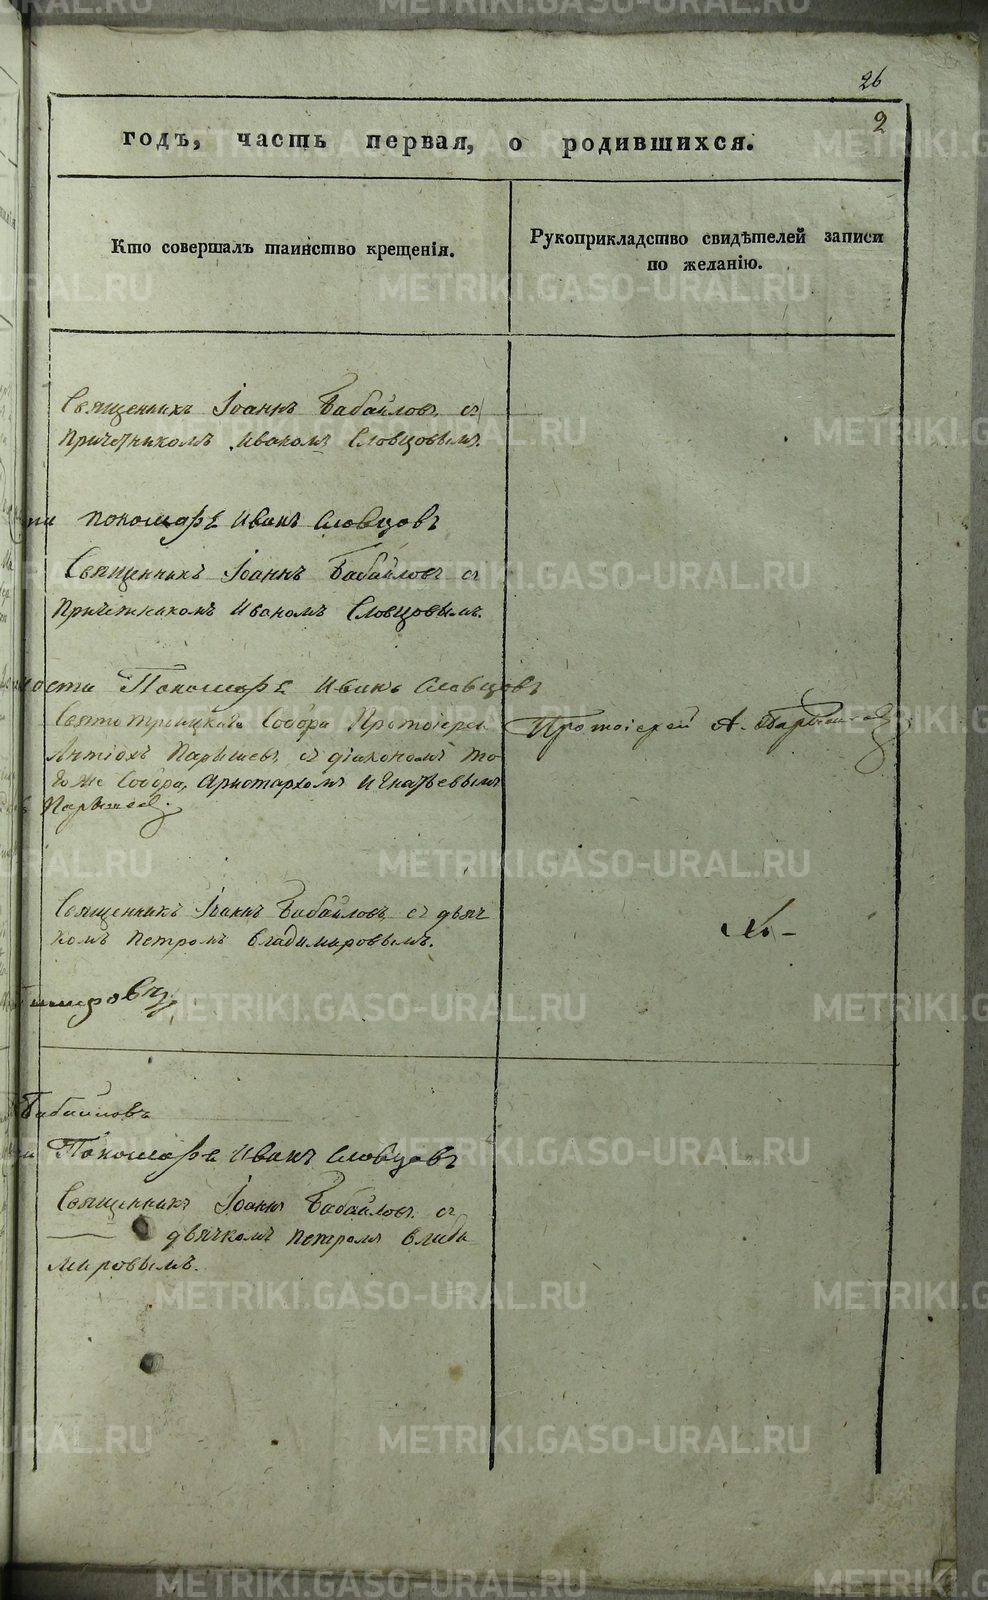 26
2
годъ, часть первая, о родившихся.
Кто совершалъ таинство крещенія.
Рукоприкладство свидѣтелей записи
по желанію.
Священникъ Іоаннъ Бабайловъ съ
причетникомъ Иваномъ Словцовымъ.
пономарь Иванъ Словцовъ
Священникъ Іоаннъ Бабайловъ съ
причетникомъ Иваномъ Словцовымъ.
Пономарь Иванъ Словцовъ
Святотроицкаго Собора Протоіерей
Антіохъ Парышевъ, съ діакономъ то
гоже Собора, Аристархомъ Игнатьевымъ
Парышевъ.
Протоіерей А. Парышевъ
Священникъ Іоаннъ Бабайловъ съ дьяч
комъ Петромъ Владимировымъ.
Бабайловъ
Пономарь Иванъ Словцовъ
Священникъ Іоаннъ Бабайловъ съ
дьячкомъ Петромъ Влади
мировымъ.
METRIKI.GASO-URAL.RU